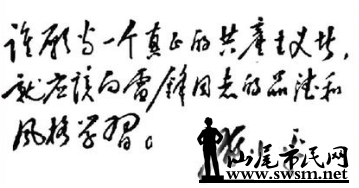 谁愿当一个真正的共产主义者，
就应该向雷锋同志的品德和
风格学习。
汕尾市民网
www.swsm.net